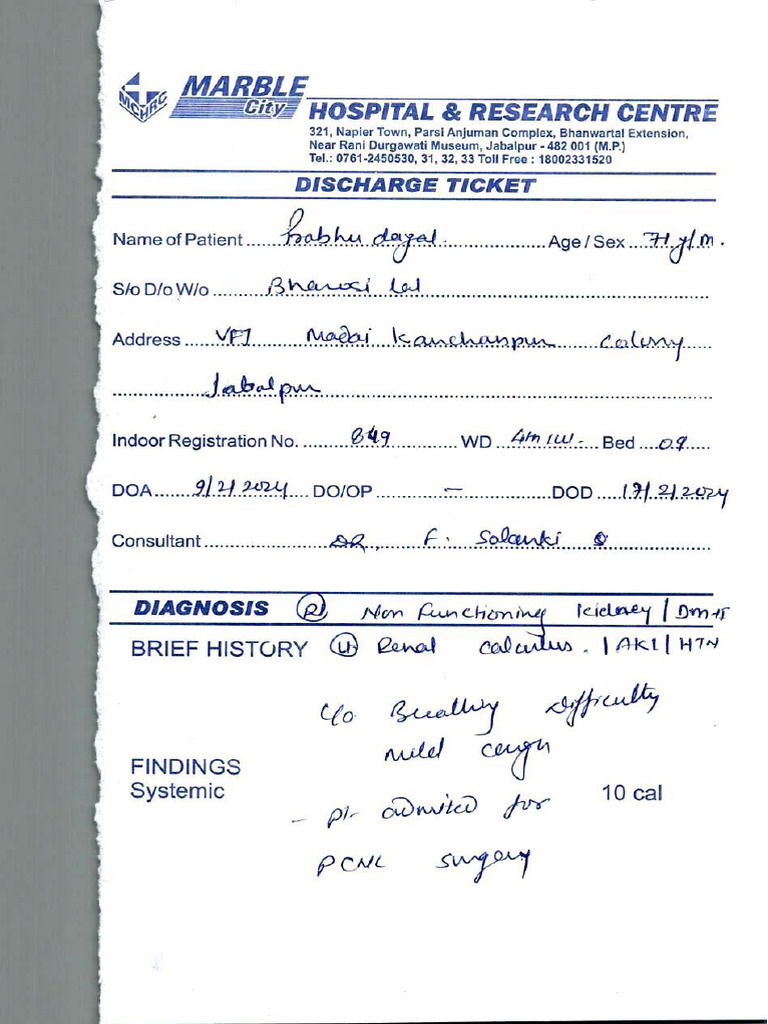 MCHRC
MARBLE
City
HOSPITAL & RESEARCH CENTRE
321, Napier Town, Parsi Anjuman Complex, Bhanwartal Extension,
Near Rani Durgawati Museum, Jabalpur - 482 001 (M.P.)
Tel.: 0761-2450530, 31, 32, 33 Toll Free : 18002331520
DISCHARGE TICKET
Name of Patient Prabhu dayal Age / Sex 71 y/m.
S/o D/o W/o Bharosi lal
Address VFJ Madai Kanchanpur Colony
Jabalpur
Indoor Registration No. 849 WD Bed 09
DOA 9/2/2024 DO/OP - DOD 17/2/2024
Consultant DR. F. Solanki
DIAGNOSIS (R) Non Functioning Kidney / Dm-II
BRIEF HISTORY (Lt) Renal calculus. / AKI / HTN
c/o Breathing difficulty
mild cough
FINDINGS
Systemic
10 cal
- pt admitted for
PCNL surgery